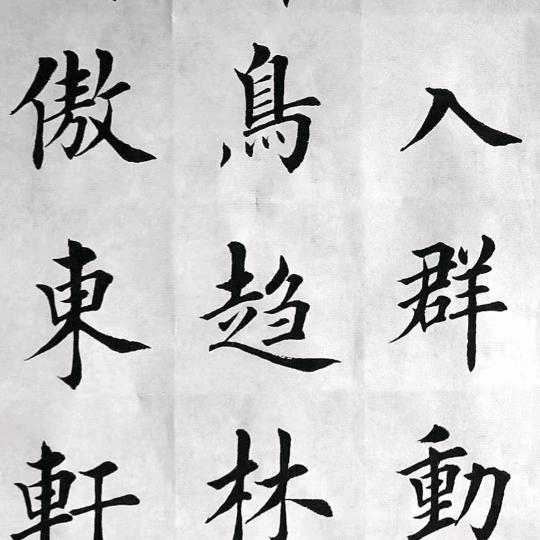 入群動
鳥趋林
傲東軒